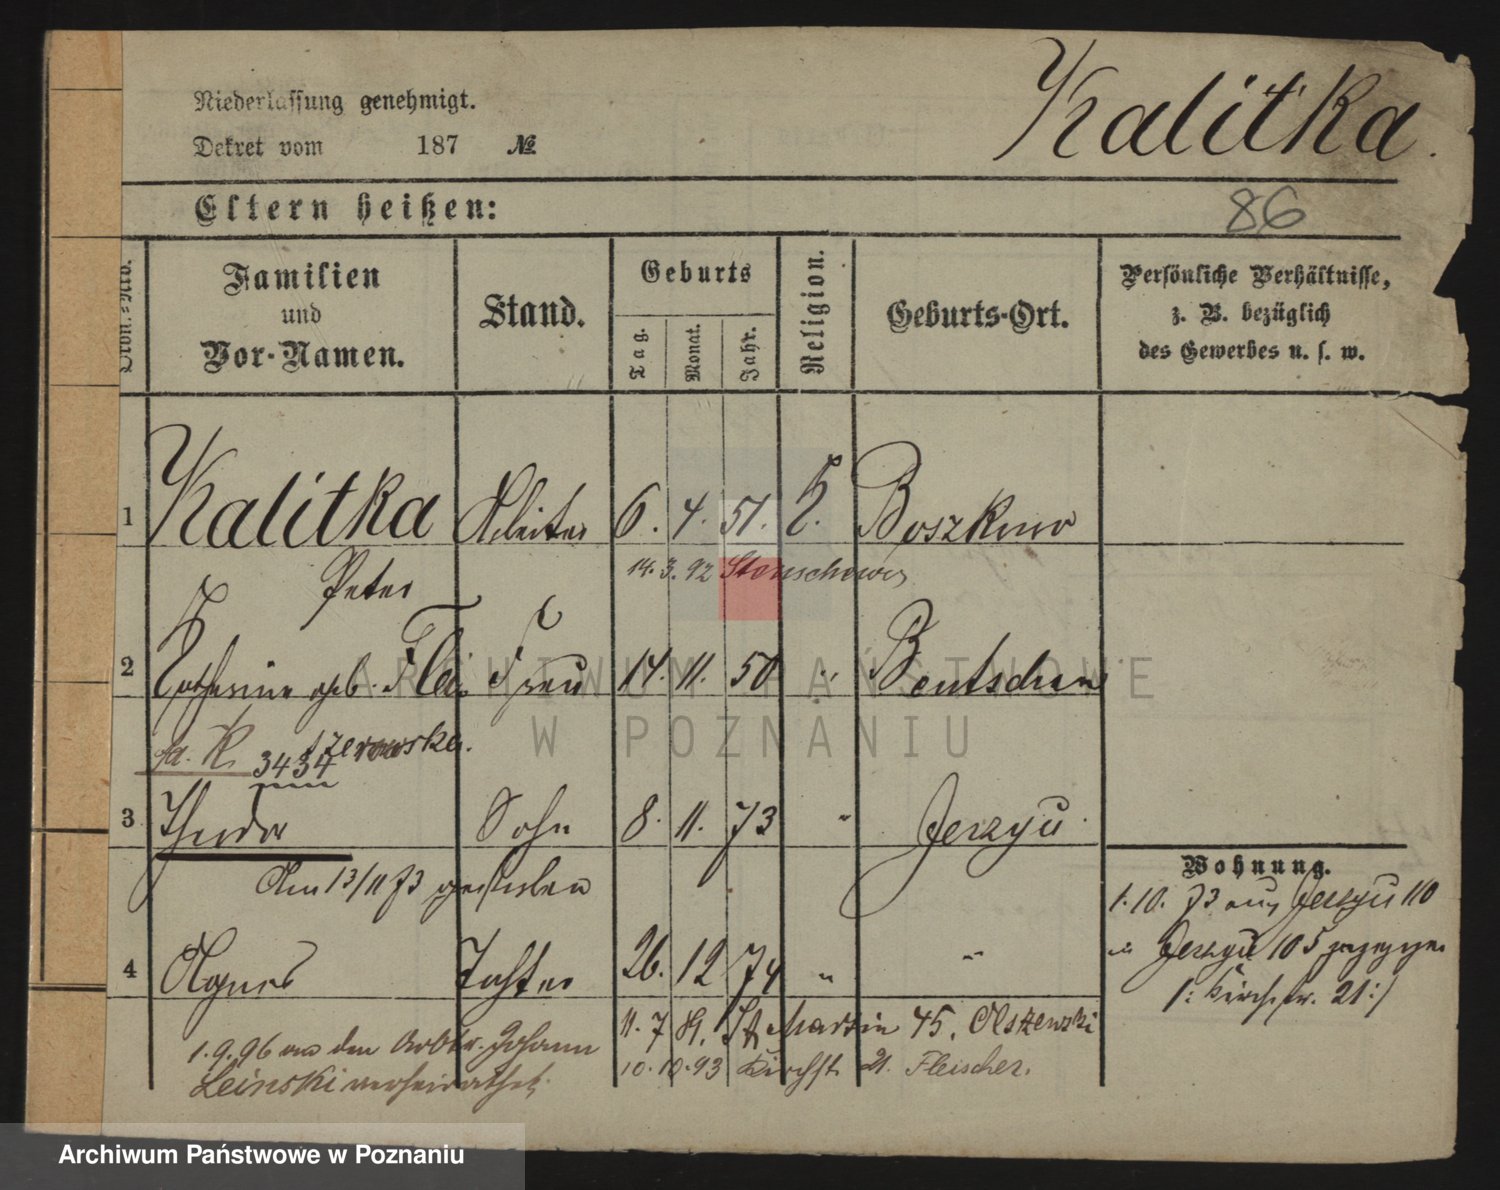 Niederlassung genehmigt.
Kalitka.
Dekret vom 187 №
Eltern heißen:
86
Ordn.-Nro.
Familien
und
Vor-Namen.
Stand.
Geburts
Tag.
Monat.
Jahr.
Religion.
Geburts-Ort.
Persönliche Verhältnisse,
z. B. bezüglich
des Gewerbes u. s. w.
1 Kalitka Arbeiter 6. 4. 51. k. Boszkowo
Peter
14. 3. 92
2 Catharine geb. Frau 14. 11. 50 " Bentschen
3434
3 Theodor Sohn 8. 11. 73 " Jerzyu
Am 13/11 73 gestorben
Wohnung.
1. 10. 73 aus Jerzyu 110
in Jerzyu 105 gezogen
4 Agnes Tochter 26. 12 74 " "
/: Kirchstr. 21 :/
11. 7 St Martin 45. Olszewski
1. 9. 96 an den Arbtr. Johann
10. 10. 93 Kirchstr. 21. Fleischer.
Leinski verheirathet.
ARCHIWUM PAŃSTWOWE
W POZNANIU
Archiwum Państwowe w Poznaniu